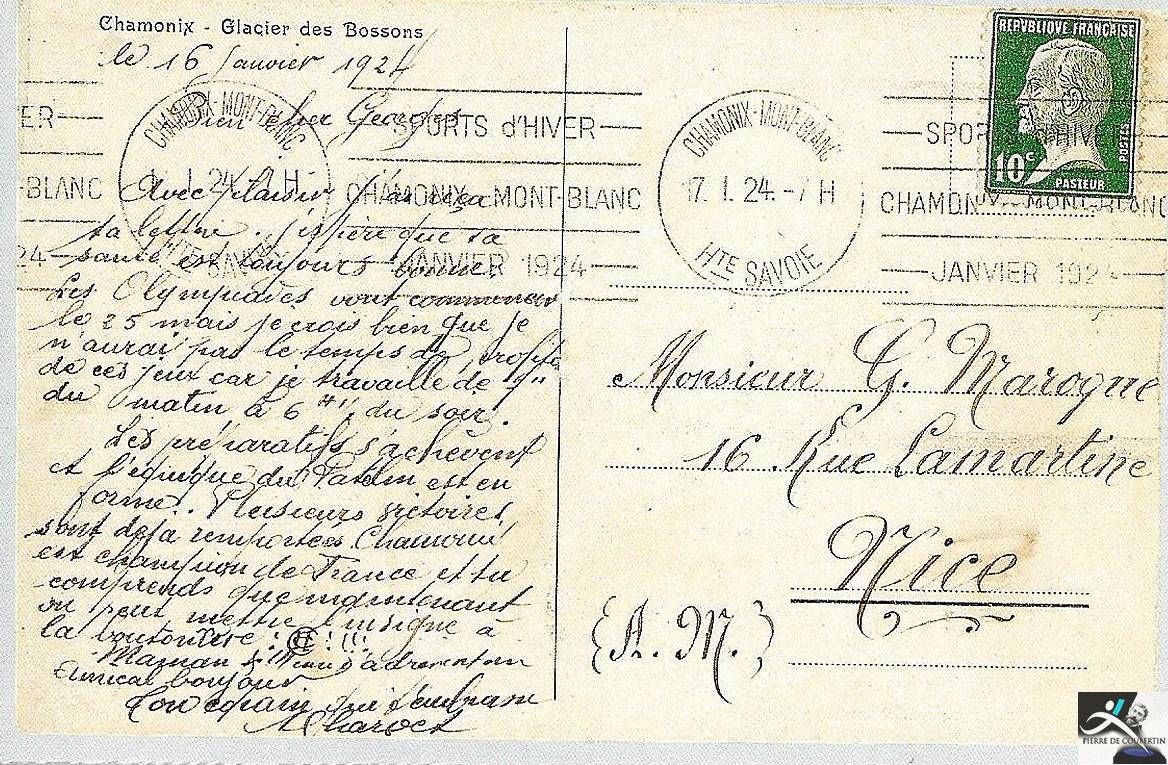 Chamonix - Glacier des Bossons
le 16 Janvier 1924
Bien cher Georges
Avec plaisir j'ai reçu
ta lettre. J'espère que ta
santé est toujours bonne.
Les Olympiades vont commencer
le 25 mais je crois bien que je
n'aurai pas le temps de profiter
de ces jeux car je travaille de 9H
du matin à 6H du soir.
Les préparatifs s'achèvent
et l'équipe du Patin est en
forme.. Plusieurs victoires
sont déjà remportées. Chamonix
est champion de France et tu
comprends que maintenant
on peut mettre l'insigne à
la boutonnière ! !!!
Maman &
amical bonjour
Ton copain qui t'embrasse
ER
-BLANC
24
CHAMONIX-MONT-BLANC
SPORTS d'HIVER
CHAMONIX-MONT-BLANC
JANVIER 1924
CHAMONIX-MONT-BLANC
17. 1. 24. - 7 H
HTE SAVOIE
SPORTS d'HIVER
CHAMONIX-MONT-BLANC
JANVIER 1924
REPUBLIQUE FRANÇAISE
POSTES
10c
PASTEUR
Monsieur G. Maroque
16 Rue Lamartine
Nice
(A. M.)
PIERRE DE COUBERTIN